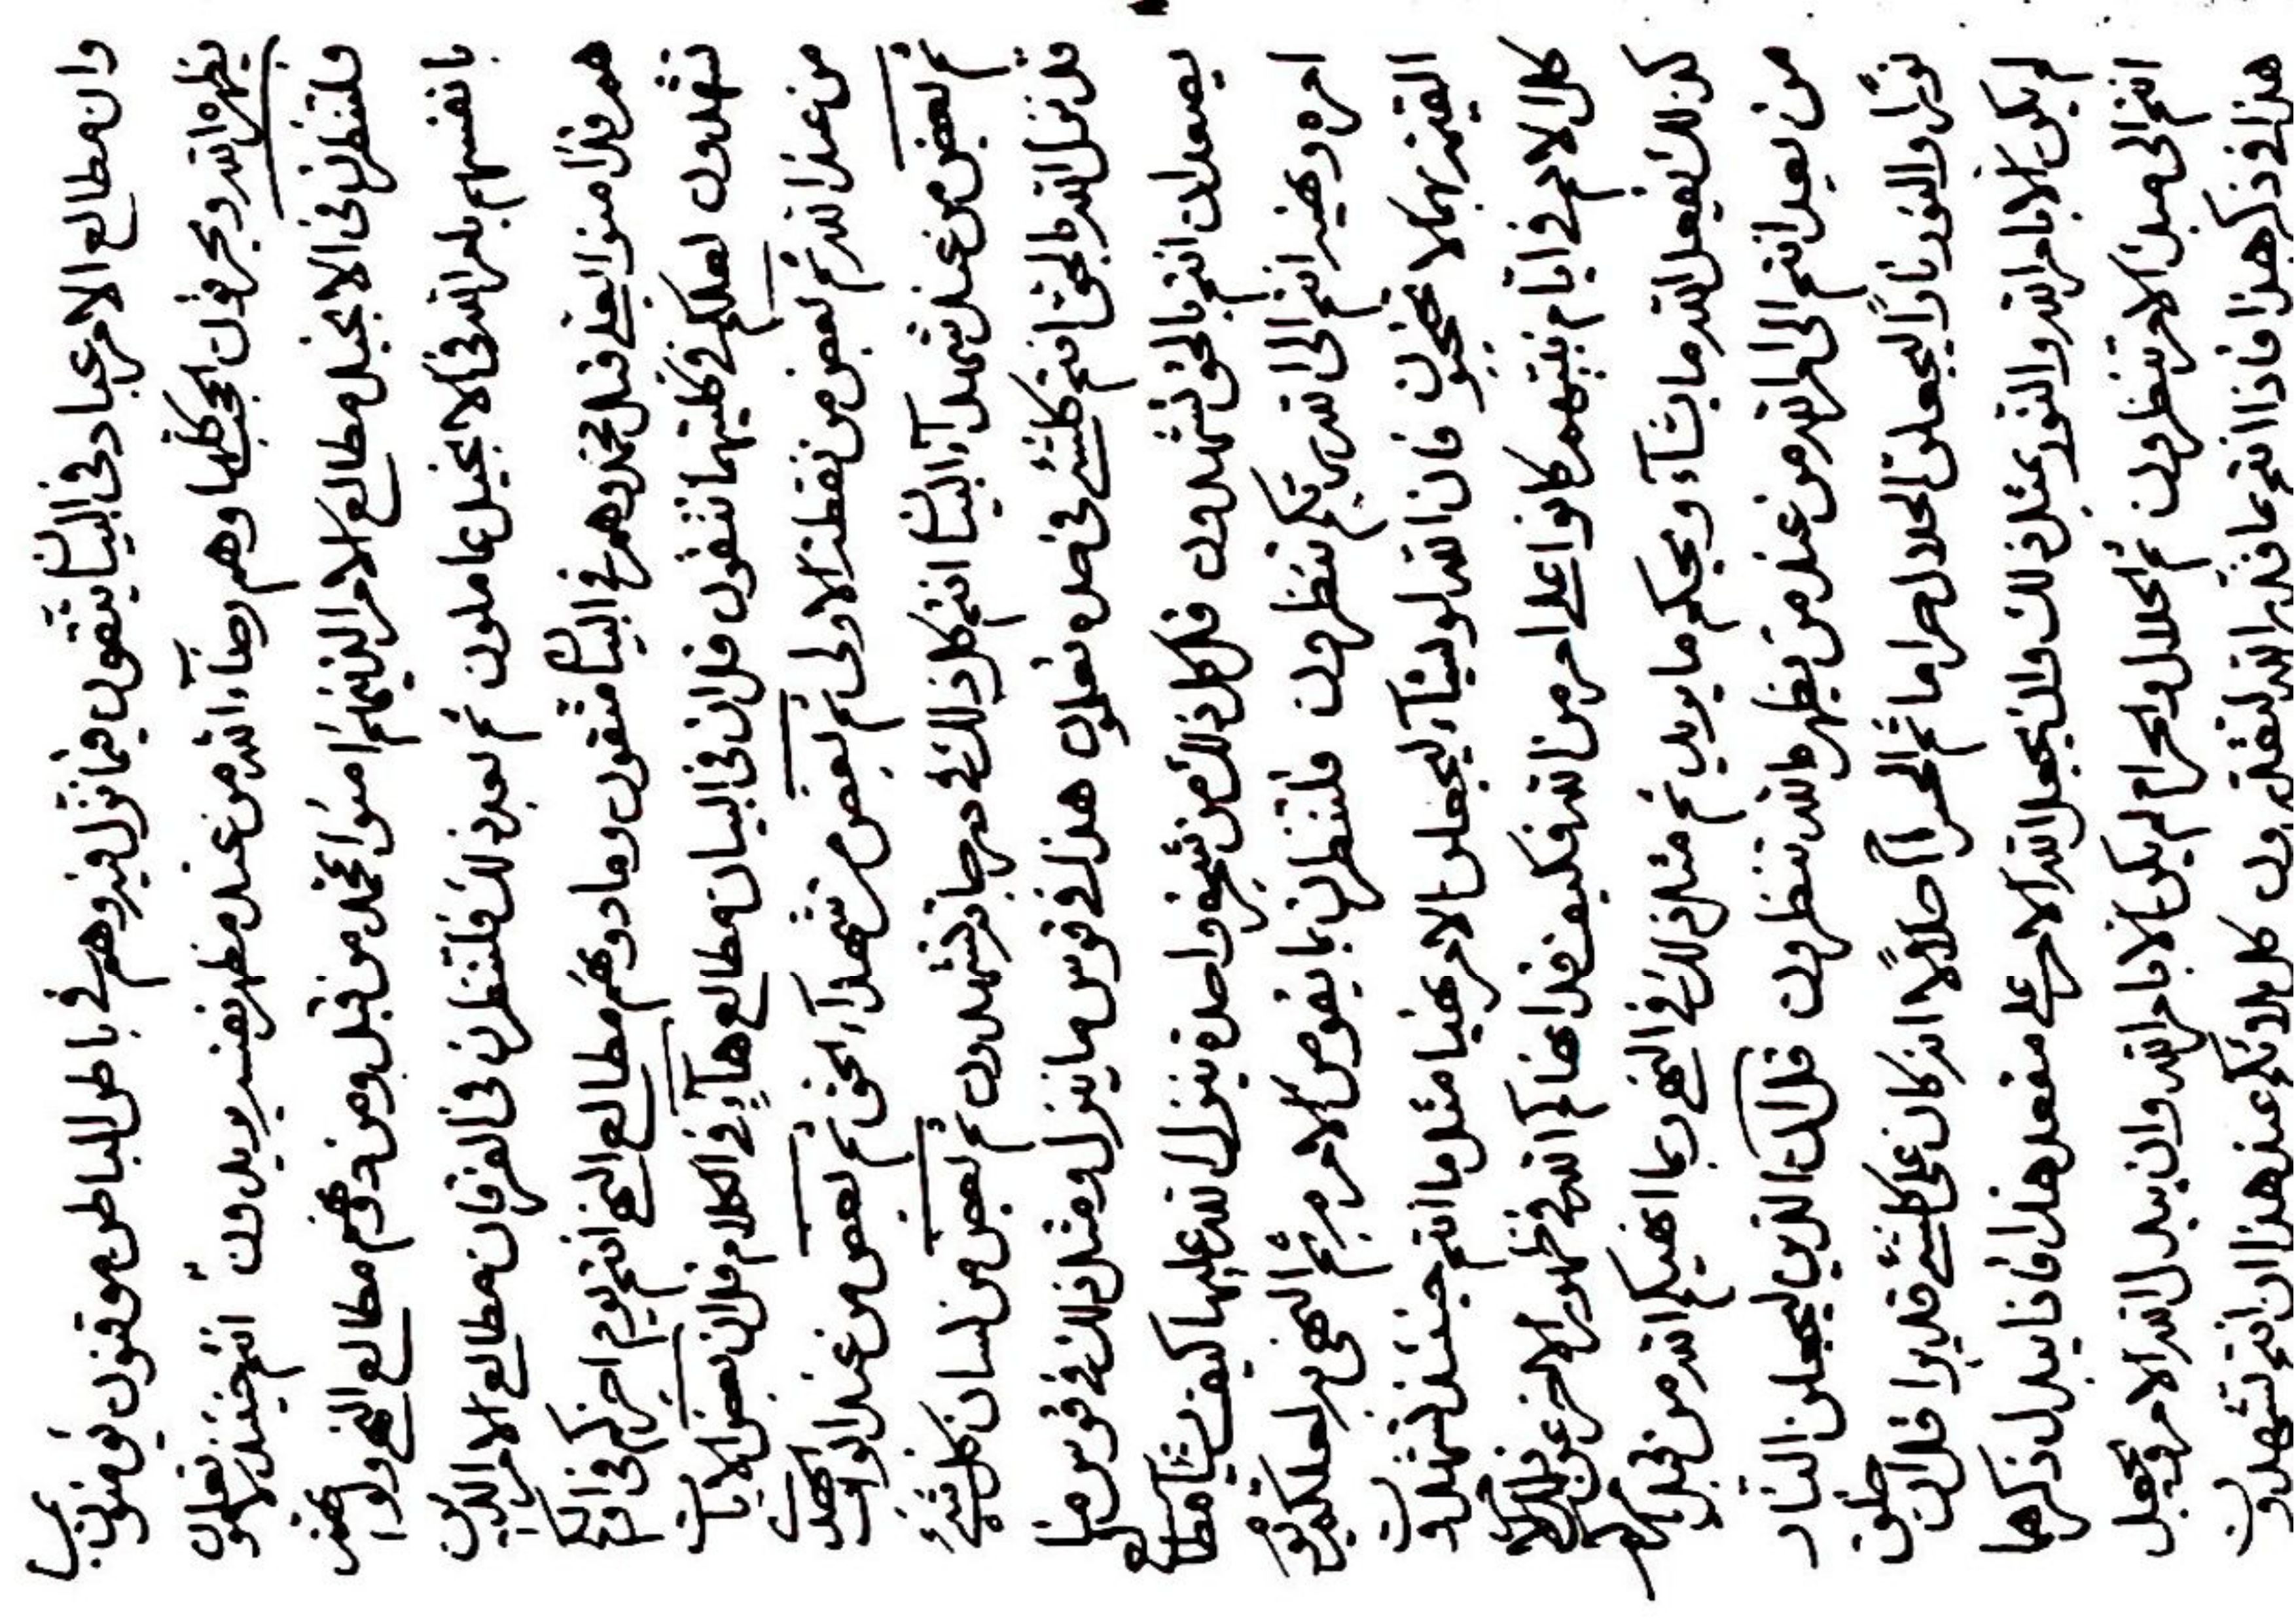 وان مطالع الامر عباد فى البيان يتقون فيما نزل فيه وهم فى باطن الباطن موقنون يؤمنون بمن
يظهره الله ويخرقون الحجب كلها وهم رضاء الله من عند مظهر نفسه يريدون انتم حينئذ لا تعلمون
فلتنظرن فى الانجيل مطالع الامر الذينهم امنوا بمحمد من قبل ومن دونهم مطالع النهى ولو
بانفسهم بامر الله فى الانجيل عاملون ثم بعد ذلك فلتنظرن فى الفرقان مطالع الامر الذين
هم قد امنوا بعلى قبل محمد وهم فى البيان متقون وما دونهم مطالع النهى انتم يوم اخركم فى اولكم
تشهدون لعلكم فى كليتهما تتقون قل ان فى البيان مطالع فى الكلام قل ان بعض الايات
من عند الله ثم بعض من نقطة الاولى ثم بعض من شهداء الحق ثم بعض من عند ابواب الهدى
ثم بعض من عند شهداء البيان انتم كل ذلك فى درجاته تشهدون ثم بعض من لسان كل شىء
قل نزل الله بالحق انتم كلشىء فى حده تعلون هذا فى قوس ما ينزل ومثل ذلك فى قوس ما
يصعد ان انتم بالحق تشهدون قل كل ذلك من شجرة واحدة ينزل الله عليها كيف يشاء مطالع
امره ونهيه انتم الى الله ربكم تنظرون فلتنظرن بما يفوض الامر به ثم النهى به لعلكم يوم
القيمة بهما لا تحتجبون فان الله لو يشاء ليجعلن الامر نهيا مثل ما انتم حينئذ تشهدون
كل الامم فى ايام نبيهم كانوا على امر من الله فكيف قد انهاكم الله فى ظهور الاخر عن ذلك
كذلك يفعل الله ما يشاء ويحكم ما يريد ثم مثل ذلك فى النهى ربما نهيكم الله من قبل
من بعد انتم الى امر الله من عند من يظهره الله تنظرون قل ان الذين ليجعلن النار
نورا والنور نارا ليجعلن الحلال حراما ثم الحرام حلالا انه كان على كلشىء قديرا قل ان خلق
لم يكن الا بامر الله والنور بمثل ذلك وان يجعل الله الامر على مقعد هذا فانا يبدل ذكرها
انتم الى مبدء الامر تنظرون ثم الحلال والحرام لم يكن الا بامر الله وان يبدل الله الامر ويجعل
هذا فى ذكر هذا فاذا انتم بما قدر الله لتقدرون كل بدئكم عند هذا ان انتم تشهدون